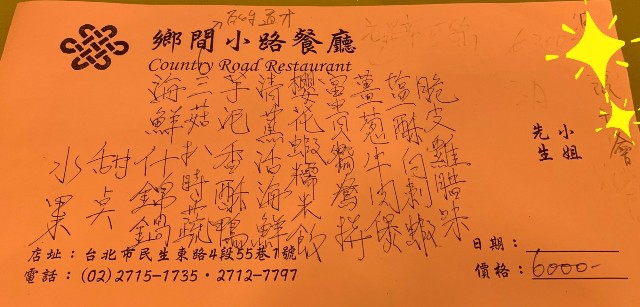 鄉間小路餐廳
Country Road Restaurant
小姐
先生
脆皮雞
塩酥白刺蝦
薑葱牛肉煲
富貴鴛鴦拼
櫻花蝦糯米飯
清蒸活海鮮
芋泥香酥鴨
三菇扒時蔬
海鮮什錦鍋
甜点
水果
店址：台北市民生東路4段55巷1號
電話：(02)2715-1735・2712-7797
日期：
價格：6000-